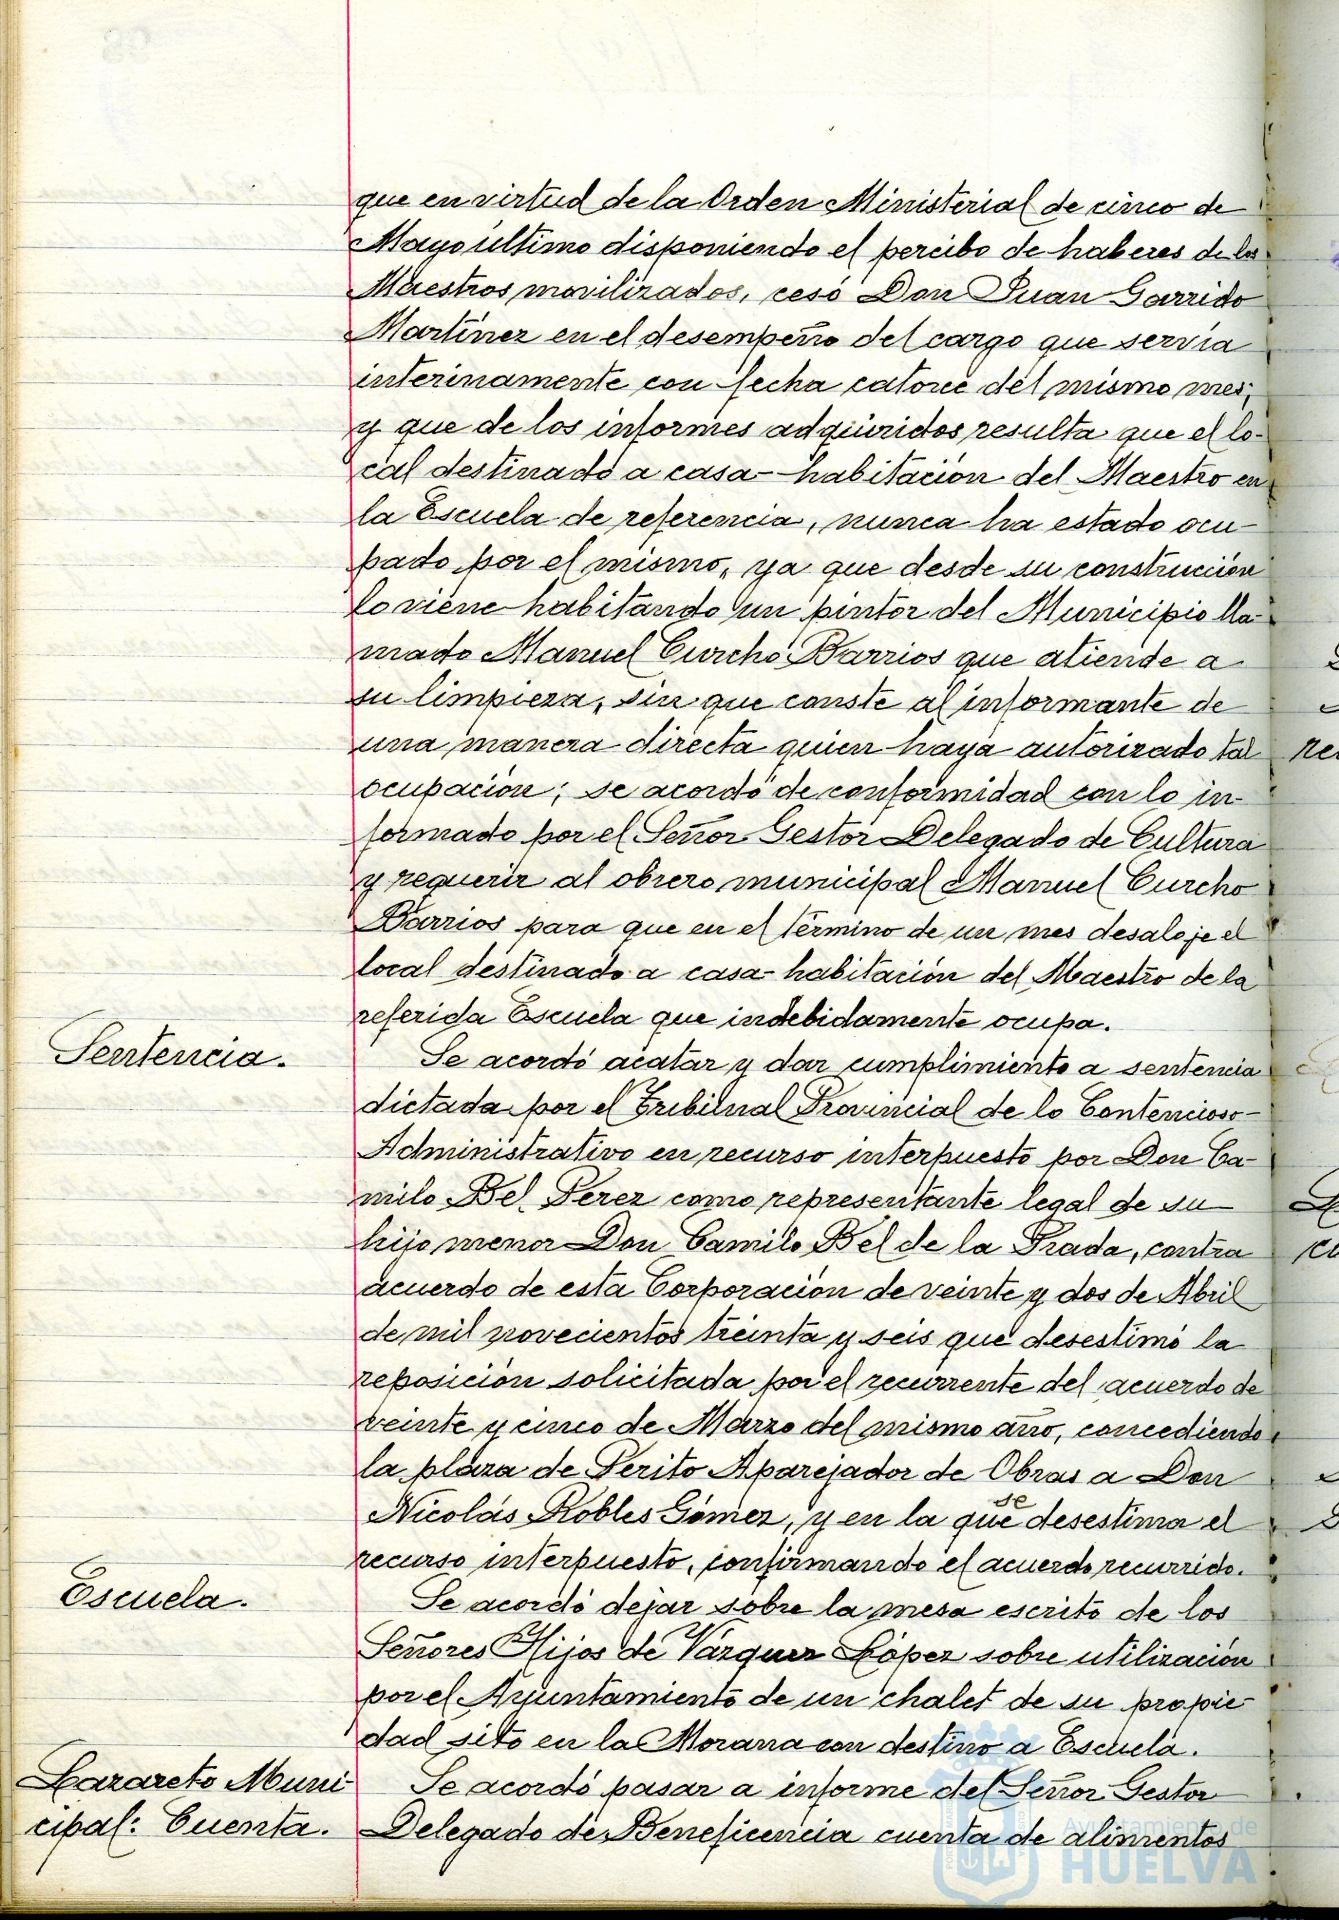 que en virtud de la Orden Ministerial de cinco de
Mayo último disponiendo el percibo de haberes de los
Maestros movilizados, cesó Don Juan Garrido
Martínez en el desempeño del cargo que servía
interinamente con fecha catorce del mismo mes;
y que de los informes adquiridos resulta que el lo-
cal destinado a casa-habitación del Maestro en
la Escuela de referencia, nunca ha estado ocu-
pado por el mismo, ya que desde su construcción
lo viene habitando un pintor del Municipio lla-
mado Manuel Curcho Barrios que atiende a
su limpieza, sin que conste al informante de
una manera directa quien haya autorizado tal
ocupación; se acordó de conformidad con lo in-
formado por el Señor Gestor Delegado de Cultura
y requerir al obrero municipal Manuel Curcho
Barrios para que en el término de un mes desaloje el
local destinado a casa-habitación del Maestro de la
referida Escuela que indebidamente ocupa.
Sentencia.
Se acordó acatar y dar cumplimiento a sentencia
dictada por el Tribunal Provincial de lo Contencioso-
Administrativo en recurso interpuesto por Don Ca-
milo Bel Perez como representante legal de su
hijo menor Don Camilo Bel de la Prada, contra
acuerdo de esta Corporación de veinte y dos de Abril
de mil novecientos treinta y seis que desestimó la
reposición solicitada por el recurrente del acuerdo de
veinte y cinco de Marzo del mismo año, concediendo
la plaza de Perito Aparejador de Obras a Don
Nicolás Robles Gómez, y en la que se desestima el
recurso interpuesto, confirmando el acuerdo recurrido.
Escuela.
Se acordó dejar sobre la mesa escrito de los
Señores Hijos de Vázquez López sobre utilización
por el Ayuntamiento de un chalet de su propie-
dad sito en la Morana con destino a Escuela.
Lazareto Muni-
cipal: Cuenta.
Se acordó pasar a informe del Señor Gestor
Delegado de Beneficencia cuenta de alimentos
Ayuntamiento de
HUELVA